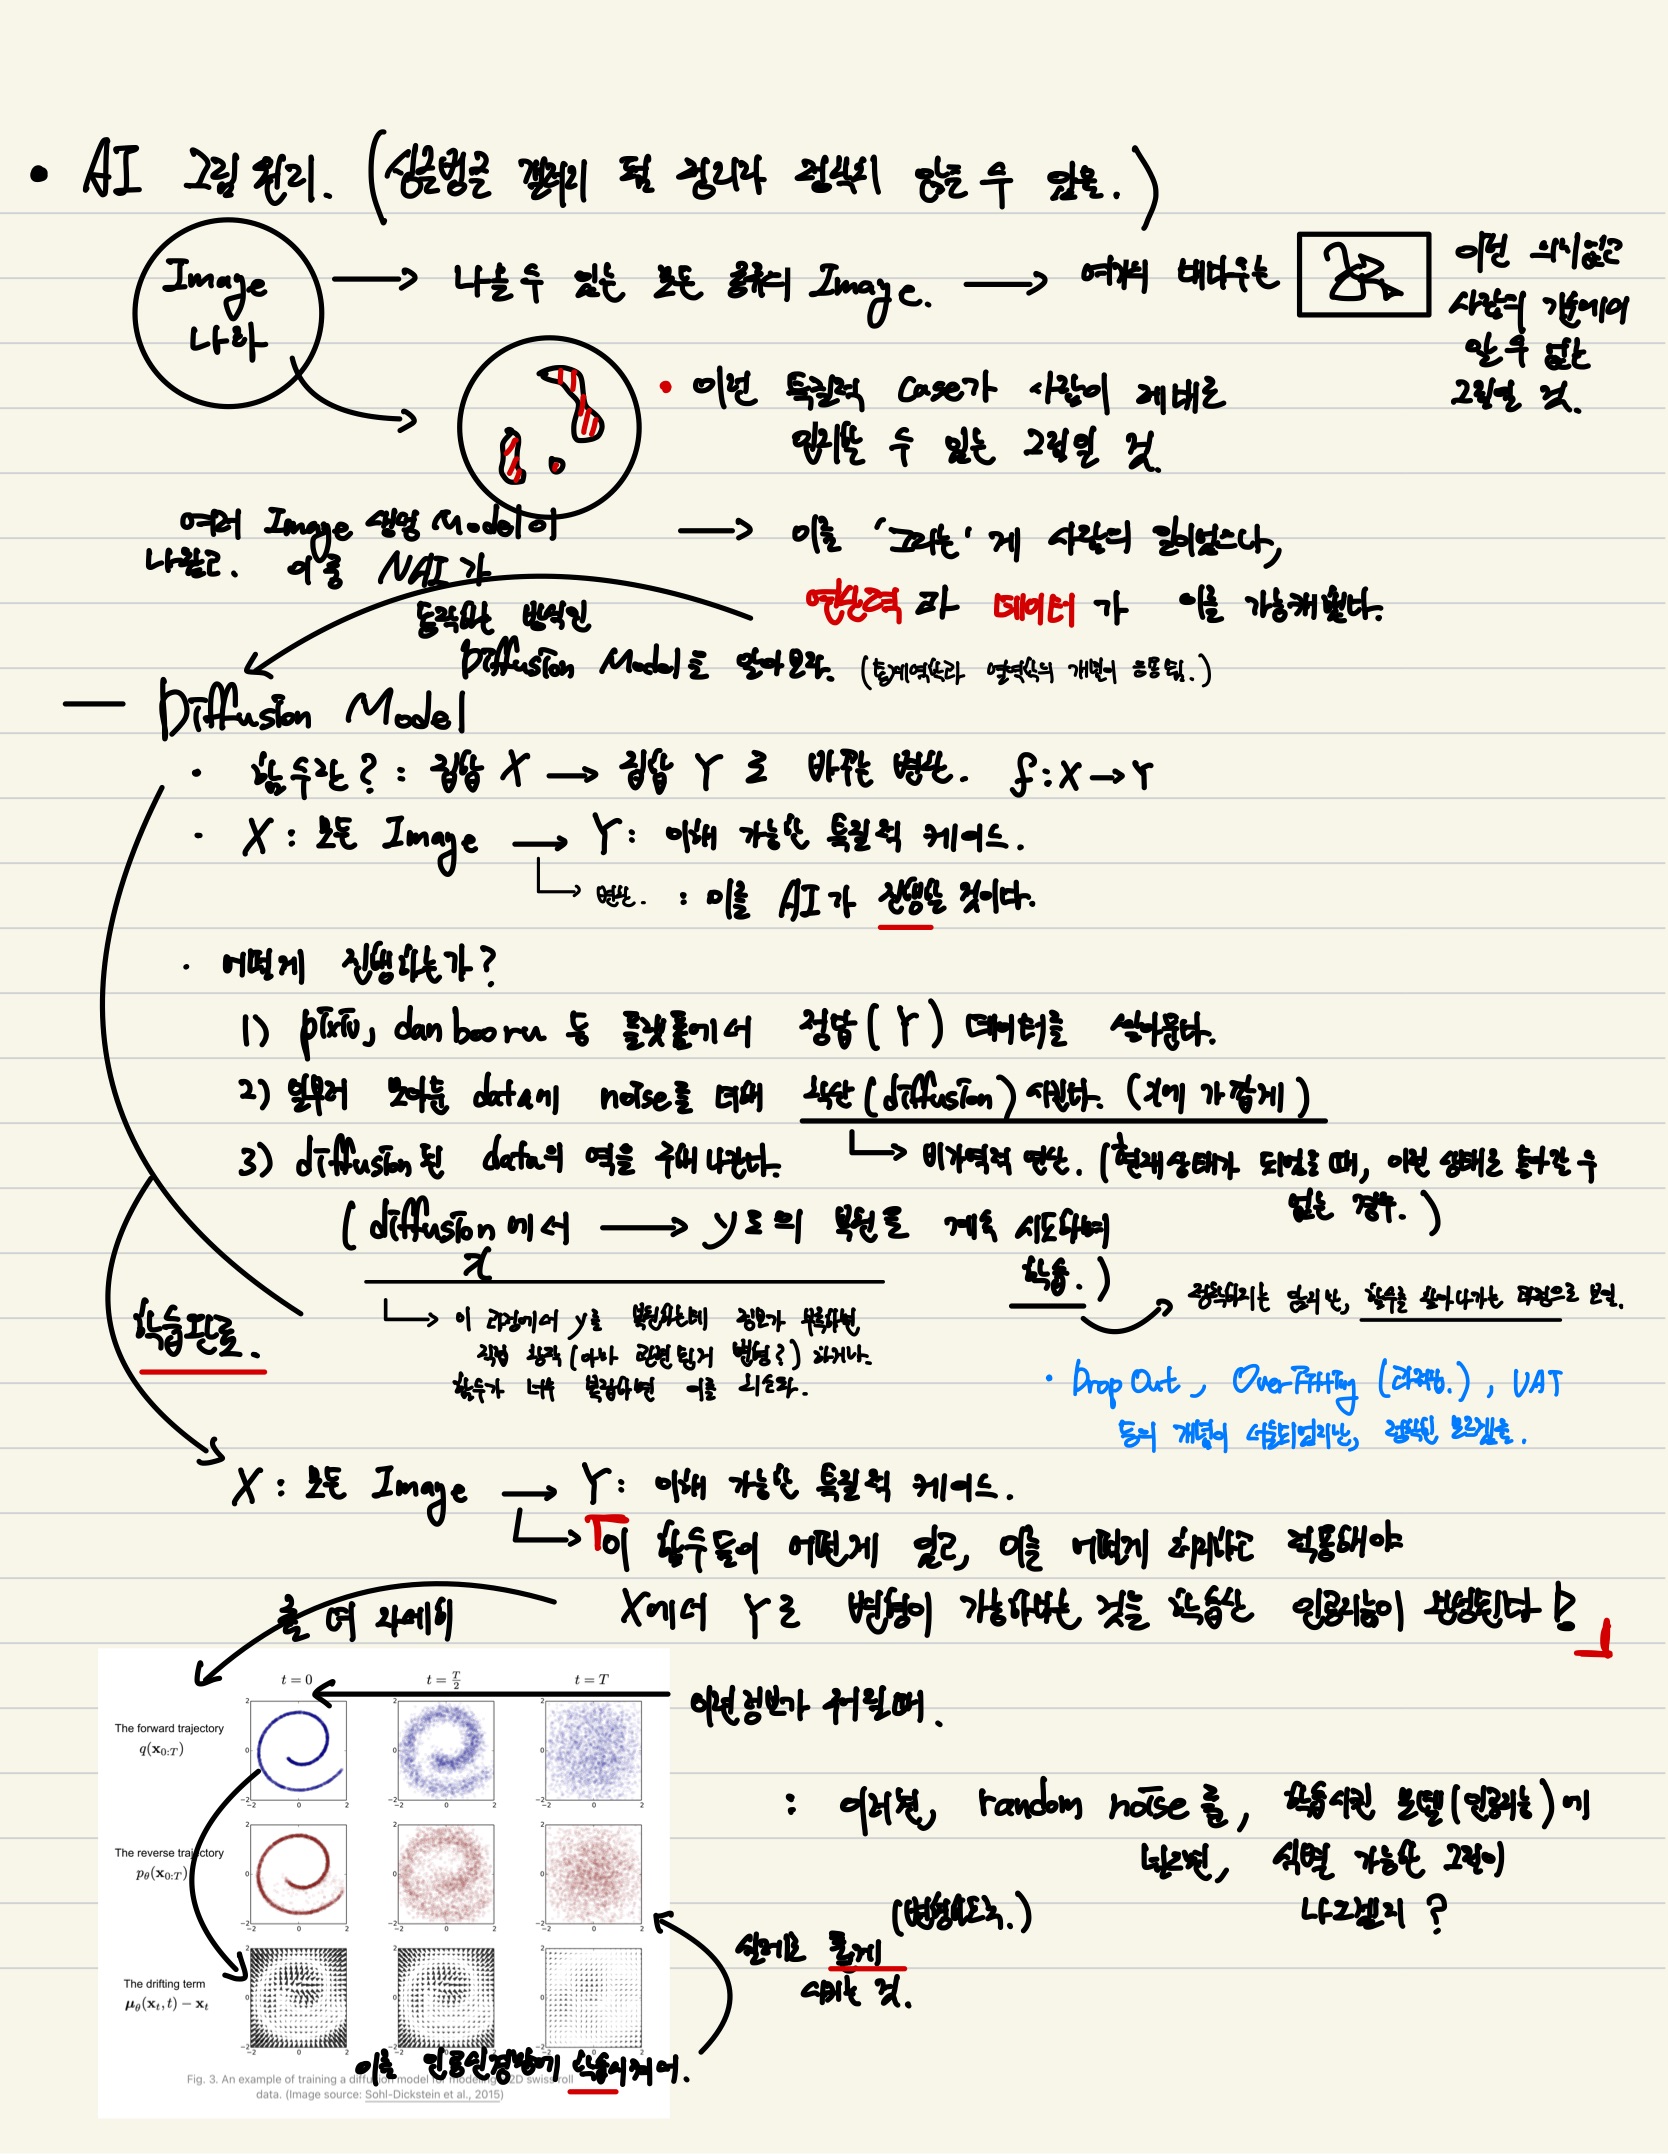 • AI 그림 원리. (싱글벙글 갤러리 펌 정리라 정확지 않을 수 있음.)
Image
나라
→ 나올 수 있는 모든 종류의 Image. → 여기의 대다수는
이런 의미없고
사람의 기준에서
알 수 없는
그림일 것.
• 이런 특질적 case가 사람이 제대로
인지할 수 있는 그림일 것.
여러 Image 생성 Model이
나왔고. 이중 NAI가
동작하는 방식인
Diffusion Model을 알아보자. (통계역학과 열역학의 개념이 응용됨.)
→ 이를 '그리는' 게 사람의 일이었으나,
연산력과 데이터가 이를 가능케 했다.
— Diffusion Model
· 함수란? : 집합 X → 집합 Y 로 바꾸는 변환. f : X → Y
· X : 모든 Image → Y : 이해 가능한 특질적 케이스.
변환. : 이를 AI가 진행할 것이다.
· 어떻게 진행하는가?
1) pixiv, danbooru 등 플랫폼에서 정답(Y) 데이터를 쓸어온다.
2) 일부러 모아둔 data에 noise를 더해 확산(diffusion)시킨다. (X에 가깝게)
→ 비가역적 연산. (현재상태가 되었을 때, 이전 상태로 돌아갈 수
없는 경우.)
3) diffusion된 data의 역을 구해 나간다.
(diffusion에서 → y로의 복원을 계속 시도하여
x
학습.)
정확하지는 않지만, 함수를 찾아나가는 과정으로 보임.
→ 이 과정에서 y를 복원하는데 정보가 부족하면
직접 창작(아마 관련된거 변형?)하거나.
함수가 너무 복잡하면 이를 최소화.
학습완료.
• Drop Out, Over Fitting (과적합.), UAT
등의 개념이 서술되었지만, 정확힌 모르겠음.
X : 모든 Image → Y : 이해 가능한 특질적 케이스.
「이 함수들이 어떤게 있고, 이를 어떻게 처리하고 적용해야
X에서 Y로 변형이 가능하다는 것을 학습한 인공지능이 완성된다!」
좀 더 자세히
t = 0
t = T/2
t = T
The forward trajectory
q(x0:T)
The reverse trajectory
pθ(x0:T)
The drifting term
μθ(xt, t) − xt
이런 정보가 주어질 때.
: 이러면, random noise를, 학습시킨 모델(인공지능)에
넣으면, 식별 가능한 그림이
나오겠지?
(변형하도록.)
실제로 풀게
시키는 것.
이를 인공신경망에 학습시켜서.
Fig. 3. An example of training a diffusion model for modeling a 2D swiss roll
data. (Image source: Sohl-Dickstein et al., 2015)